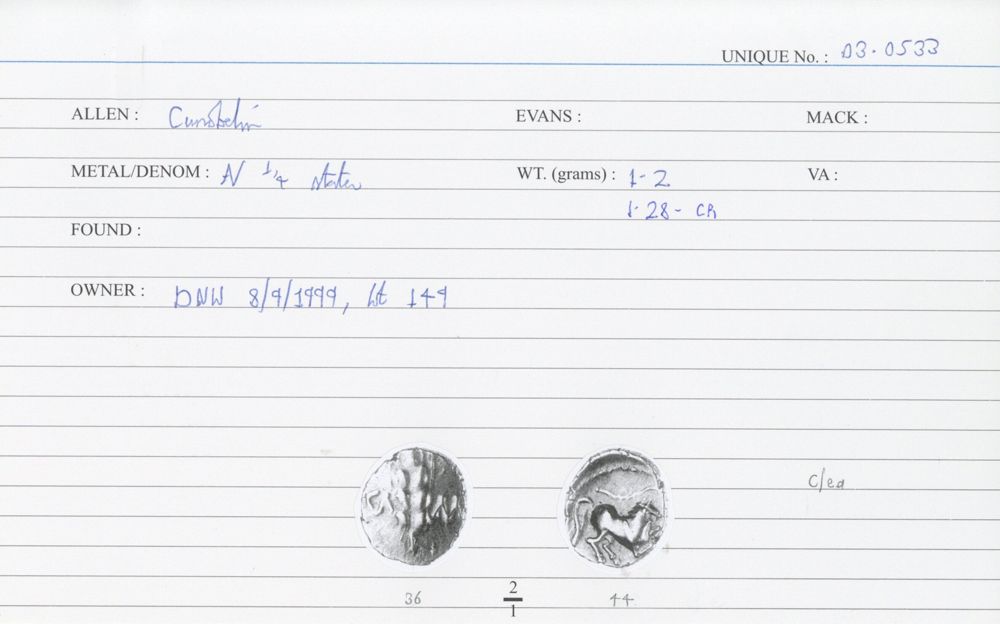 UNIQUE No. : 03·0533
ALLEN : Cunobelin EVANS : MACK :
METAL/DENOM : N 1/4 stater WT. (grams) : 1·2 VA :
1·28 - CR
FOUND :
OWNER : DNW 8/9/1999, lot 149
C/ea
36 2/1 44